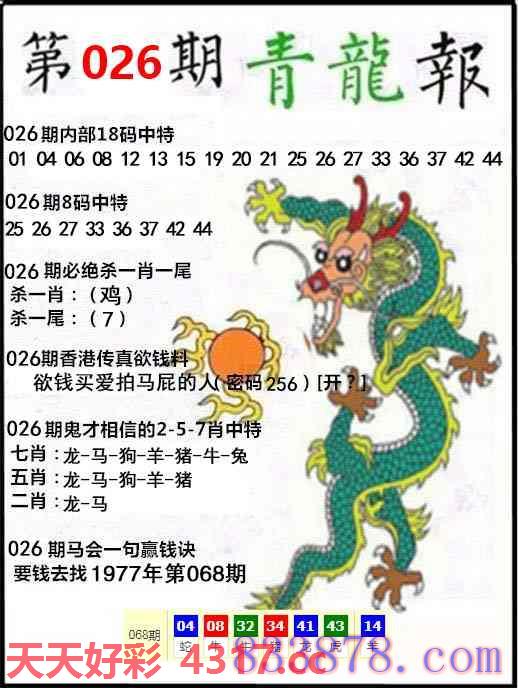 第026期青龍報
026期内部18码中特
01 04 06 08 12 13 15 19 20 21 25 26 27 33 36 37 42 44
026期8码中特
25 26 27 33 36 37 42 44
026 期必绝杀一肖一尾
杀一肖：（鸡）
杀一尾：（7）
026期香港传真欲钱料
欲钱买爱拍马屁的人（密码256）[开？]
026期鬼才相信的2-5-7肖中特
七肖：龙-马-狗-羊-猪-牛-兔
五肖：龙-马-狗-羊-猪
二肖：龙-马
026 期马会一句赢钱诀
要钱去找1977年第068期
068期 04 08 32 34 41 43 14
蛇 牛 牛 猪 龙 虎 羊
天天好彩 4317.cc
833878.com